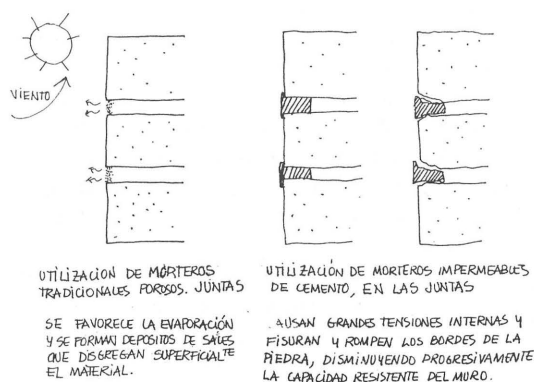 VIENTO
UTILIZACION DE MORTEROS
TRADICIONALES POROSOS. JUNTAS
SE FAVORECE LA EVAPORACIÓN
Y SE FORMAN DEPOSITOS DE SALES
QUE DISGREGAN SUPERFICIALTE
EL MATERIAL.
UTILIZACIÓN DE MORTEROS IMPERMEABLES
DE CEMENTO, EN LAS JUNTAS
.AUSAN GRANDES TENSIONES INTERNAS Y
FISURAN Y ROMPEN LOS BORDES DE LA
PIEDRA, DISMINUYENDO PROGRESIVAMENTE
LA CAPACIDAD RESISTENTE DEL MURO.